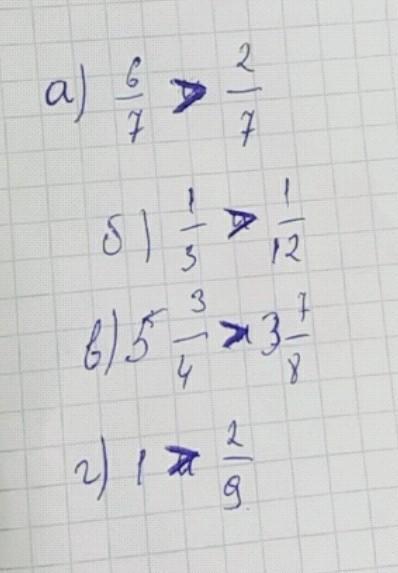 а) 6/7 > 2/7
б) 1/3 > 1/12
в) 5 3/4 > 3 7/8
г) 1 > 2/9